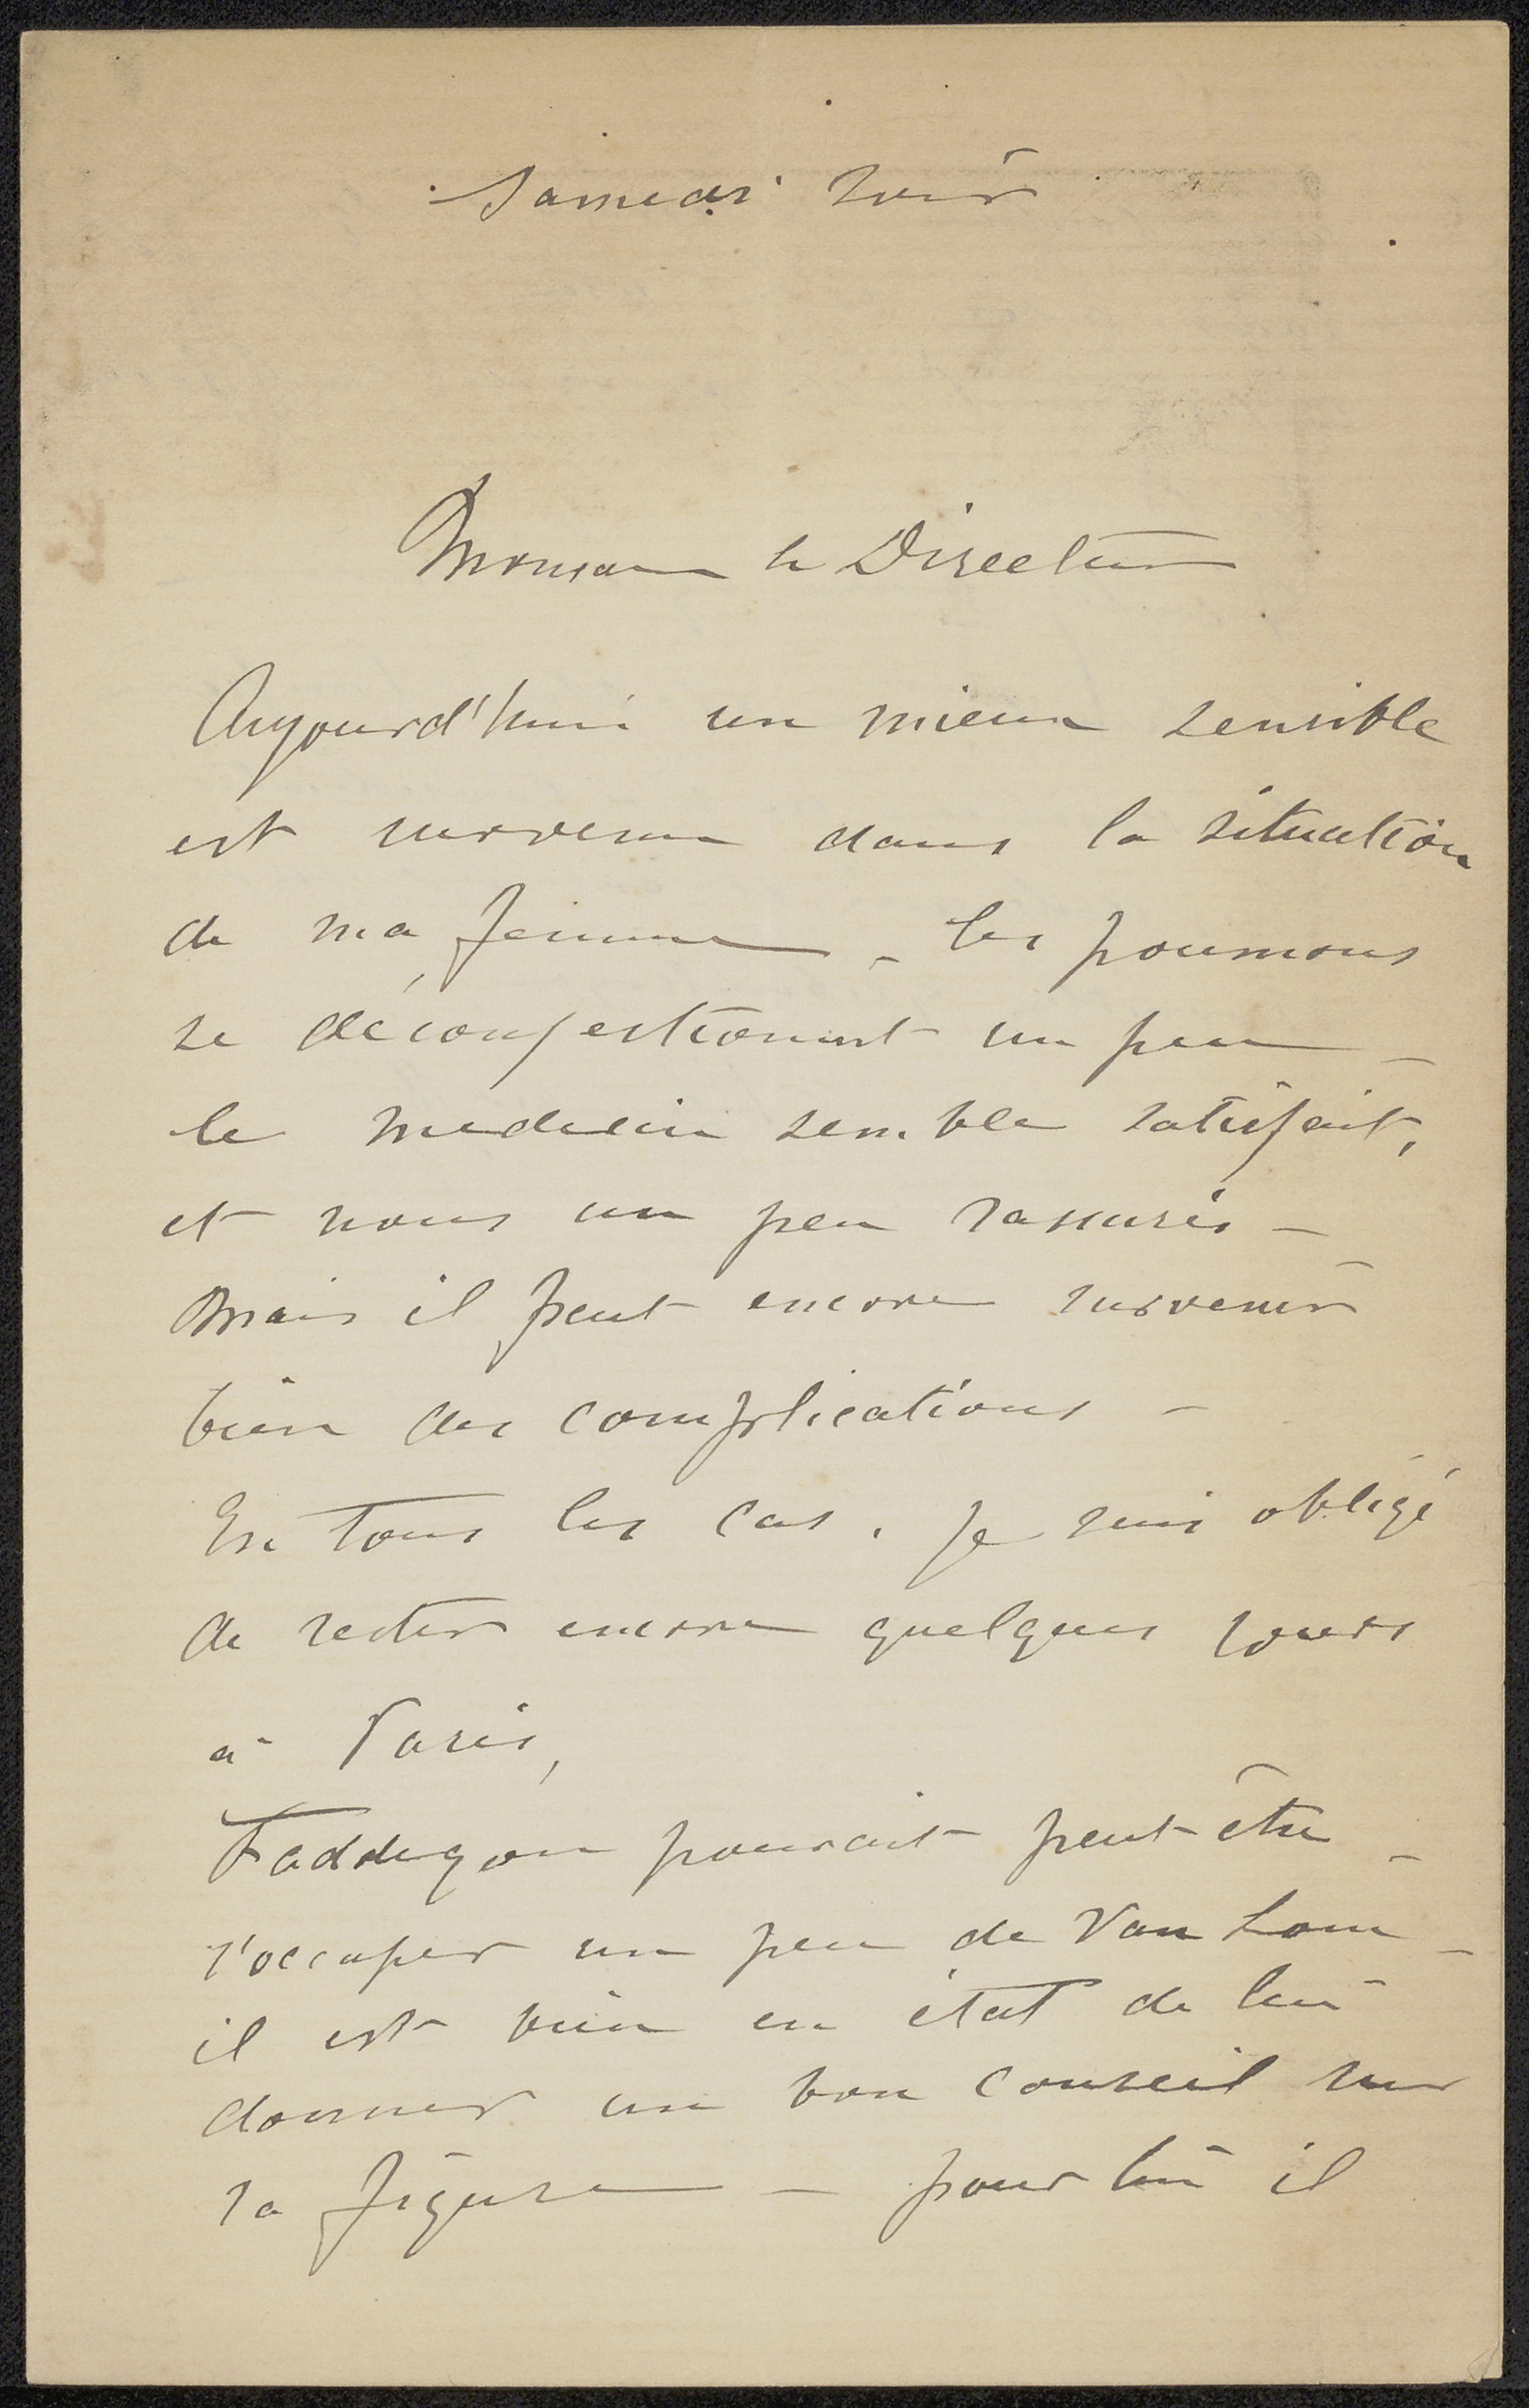 Samedi soir
Monsieur le Directeur
Aujourd'hui un mieux sensible
est survenu dans la situation
de ma femme - les poumons
se décongestionnent un peu -
le medecin semble satisfait,
et nous un peu rassurés -
Mais il peut encore survenir
bien des complications -
En tous les cas, je suis obligé
de rester encore quelques jours
à Paris,
Faddegon pourait peut-être -
s'occuper un peu de Van Lom -
il est bien en état de lui
donner un bon conseil sur
sa figure - pour lui il